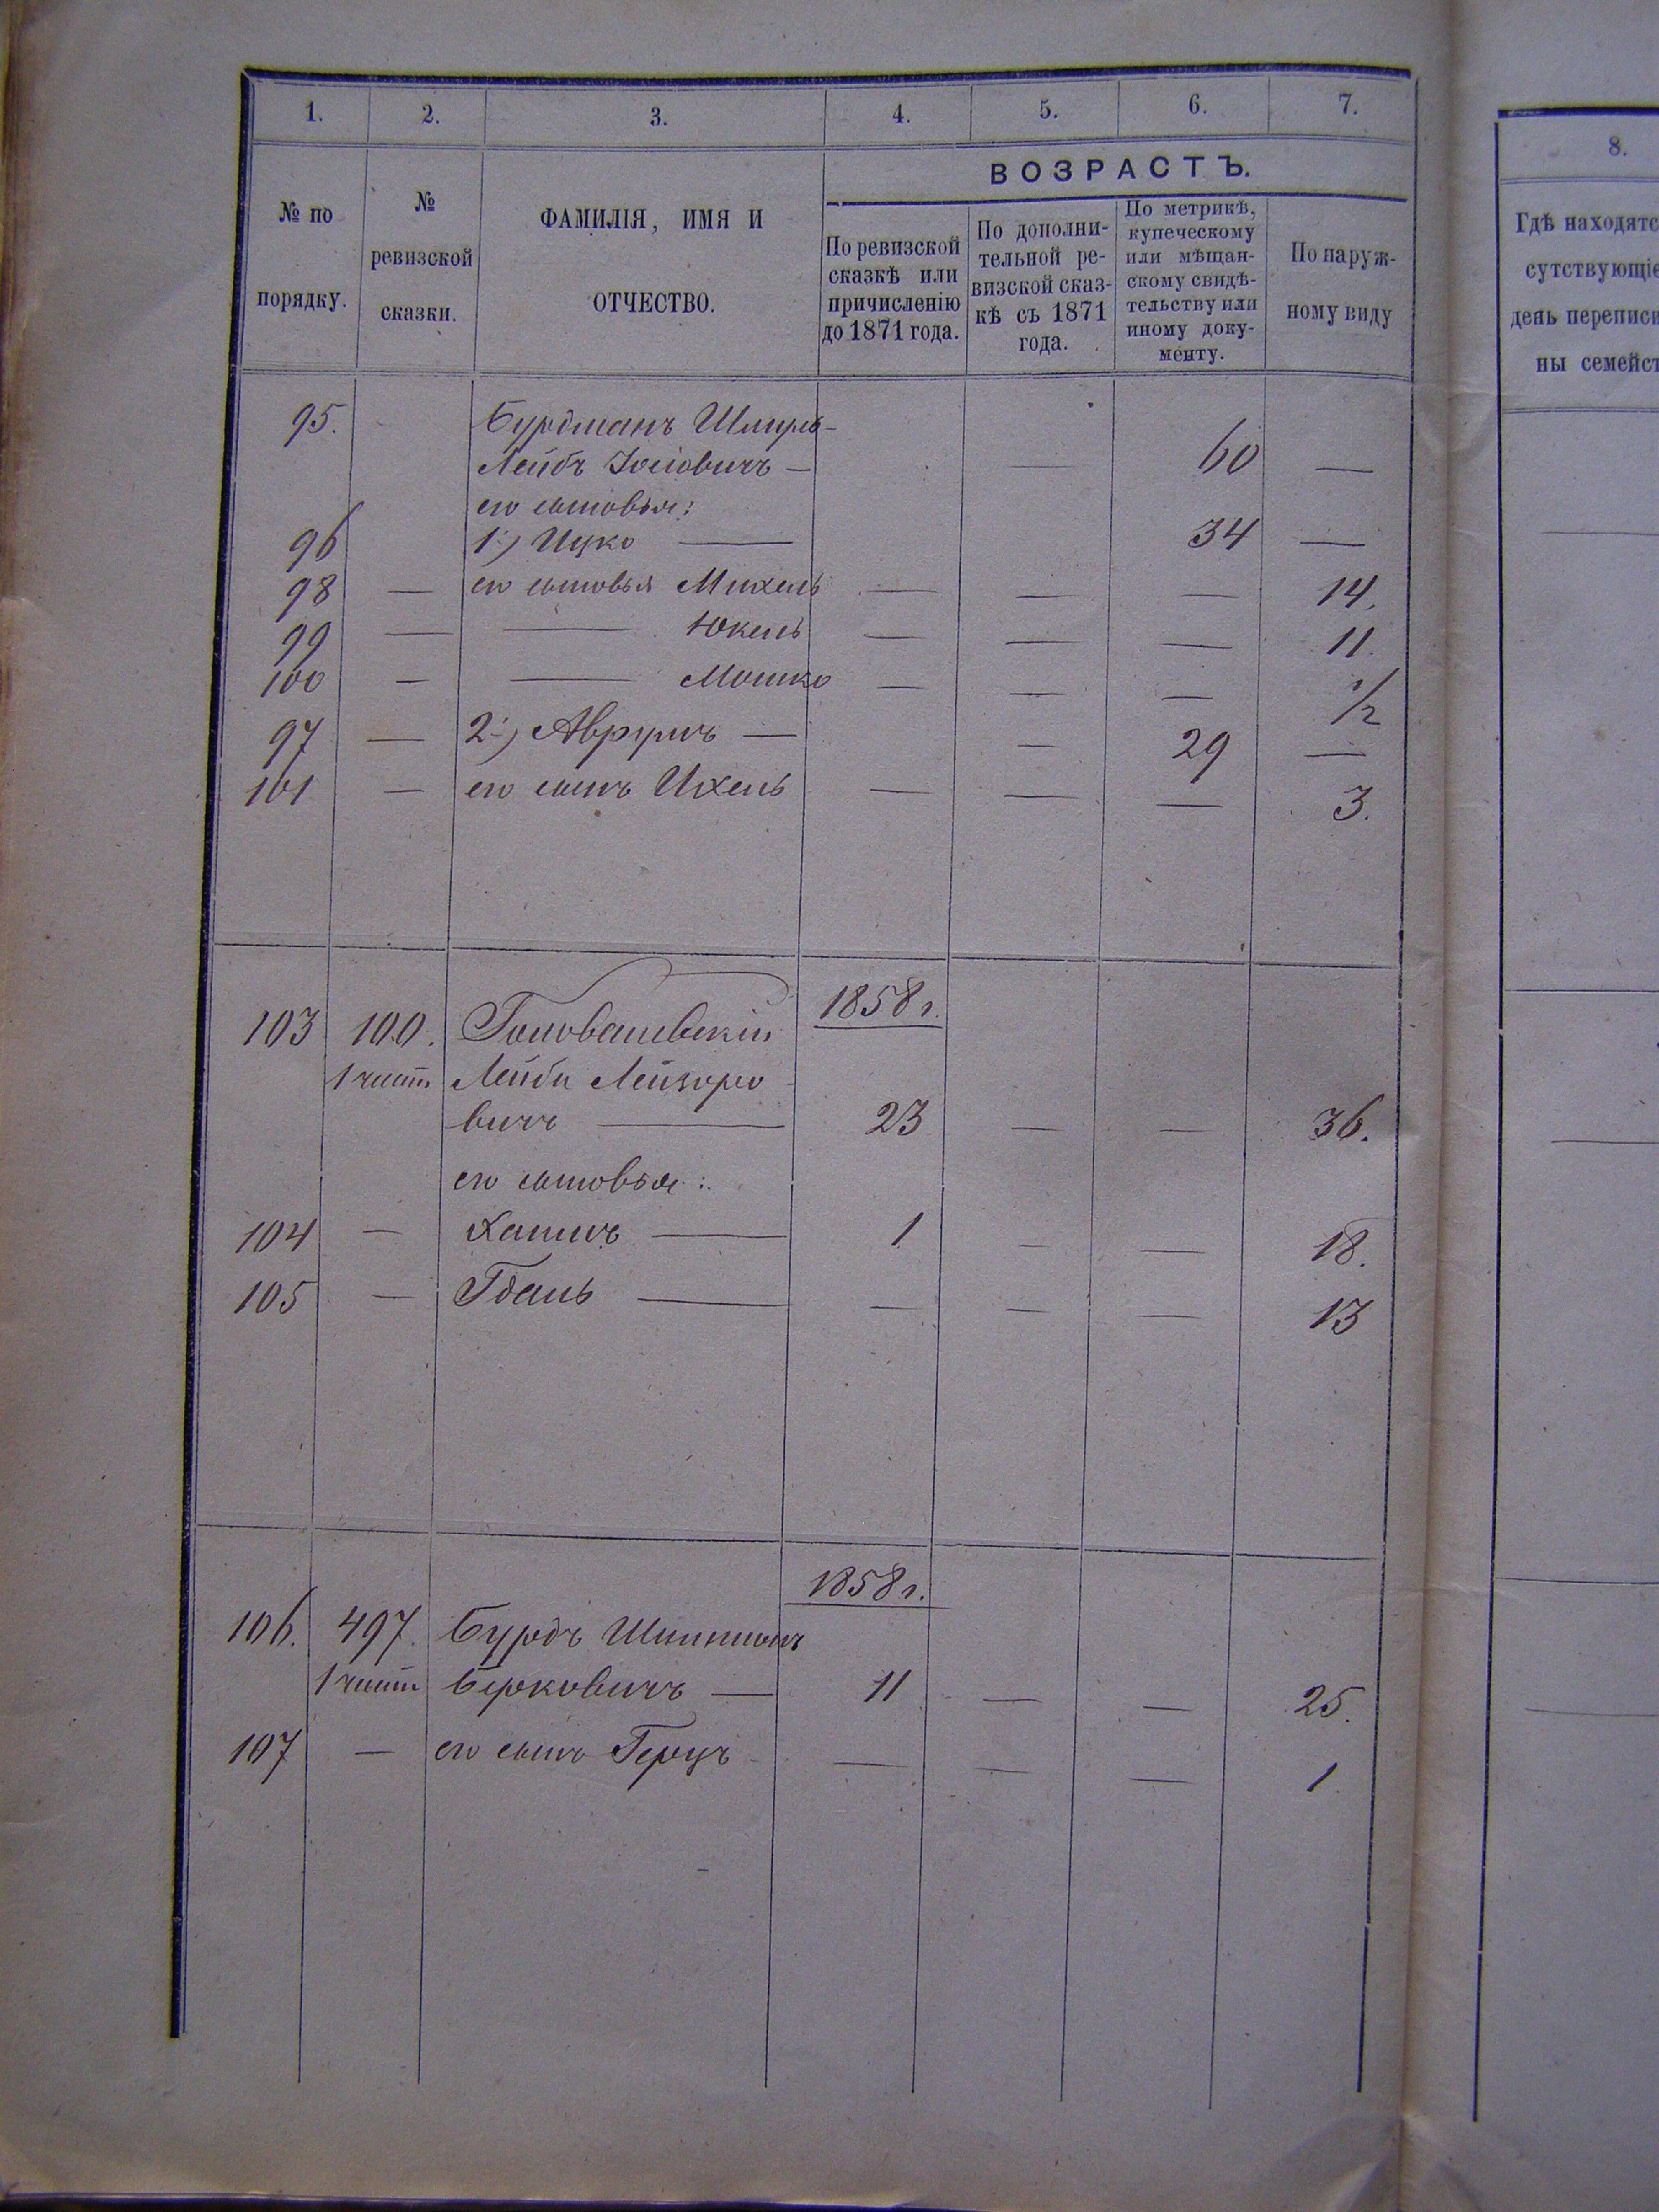 1. 2. 3. 4. 5. 6. 7.
№ по порядку.
№ ревизской сказки.
ФАМИЛІЯ, ИМЯ И ОТЧЕСТВО.
ВОЗРАСТЪ.
По ревизской
сказкѣ или
причисленію
до 1871 года.
По дополни-
тельной ре-
визской сказ-
кѣ съ 1871
года.
По метрикѣ,
купеческому
или мѣщан-
скому свидѣ-
тельству или
иному доку-
менту.
По наруж-
ному виду
8.
Гдѣ находятс
сутствующіе
день переписи
ны семейст
95. Бурдманъ Шмуль-
Лейбъ Іосіовичъ — — 60 —
его сыновья:
96 1.) Ицко — 34 —
98 — его сыновья Михель — — — 14.
99 — — Юкель — — — 11.
100 — — Мошко — — — 1/2
97 — 2.) Аврумъ — — 29 —
101 — его сынъ Ихель — — — 3.
1858 г.
103 100. Головашевскій
1 част Лейба Лейзоро-
вичъ — 23 — — 36.
его сыновья:
104 — Хаимъ — 1 — — 18.
105 — Гдаль — — — — 13
1858 г.
106. 497. Бурдъ
1 част Берковичъ — 11 — — 25.
107 — его сынъ Герцъ — — — 1.